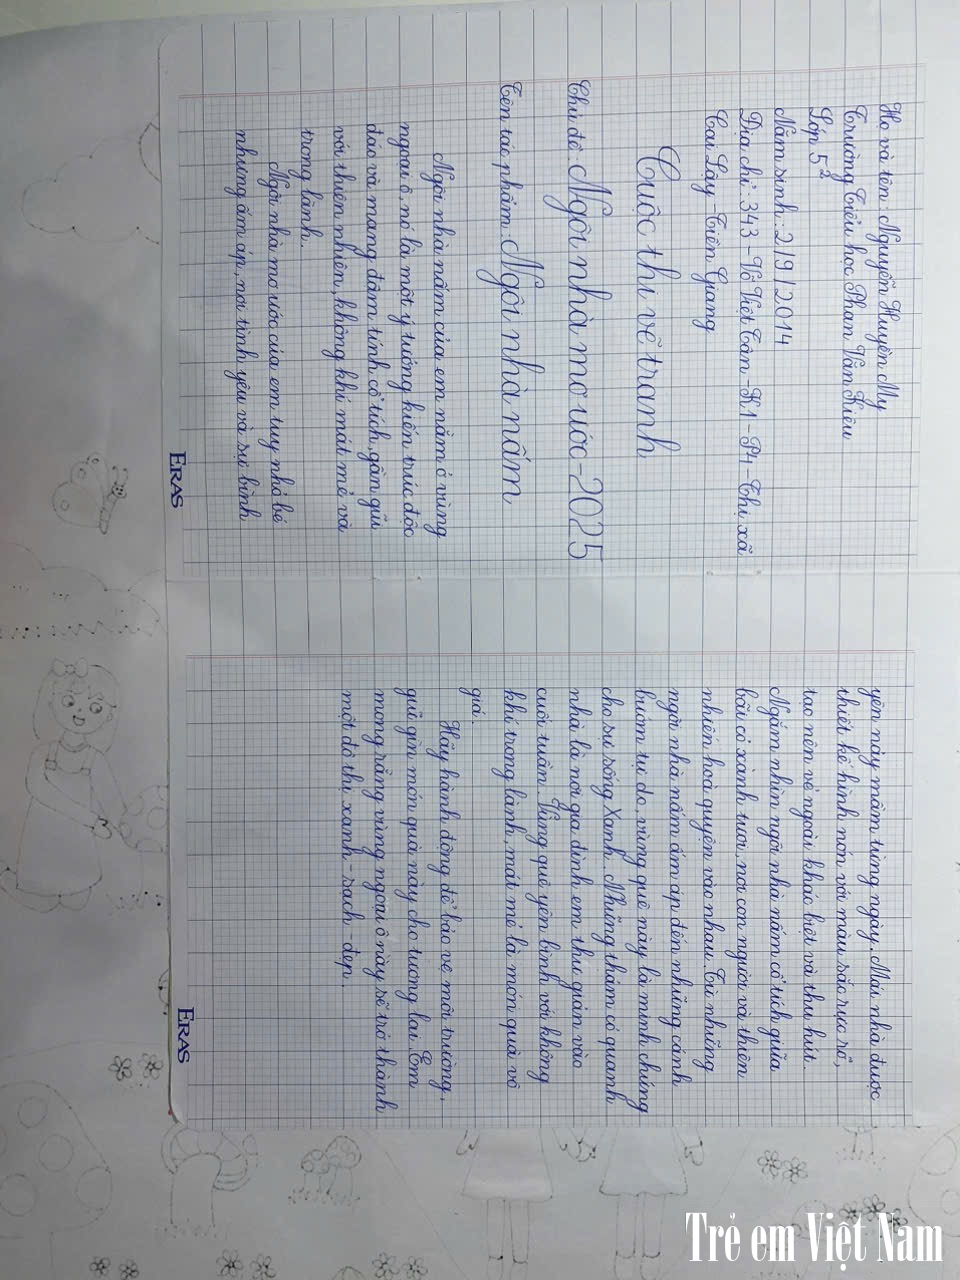 Họ và tên: Nguyễn Huyền My
Trường Tiểu học Phan Văn Kiêu
Lớp 5²
Năm sinh: 2/9/2014
Địa chỉ: 343 - Võ Việt Tân - K1 - P4 - Thị xã
Cai Lậy - Tiền Giang
Cuộc thi vẽ tranh
Chủ đề: Ngôi nhà mơ ước - 2025
Tên tác phẩm: Ngôi nhà nấm
Ngôi nhà nấm của em nằm ở vùng
ngoại ô, nó là một ý tưởng kiến trúc độc
đáo và mang đậm tính cổ tích, gần gũi
với thiên nhiên, không khí mát mẻ và
trong lành.
Ngôi nhà mơ ước của em tuy nhỏ bé
nhưng ấm áp, nơi tình yêu và sự bình
ERAS
yên nảy mầm từng ngày. Mái nhà được
thiết kế hình nón với màu sắc rực rỡ,
tạo nên vẻ ngoài khác biệt và thu hút.
Ngắm nhìn ngôi nhà nấm cổ tích giữa
bãi cỏ xanh tươi, nơi con người và thiên
nhiên hoà quyện vào nhau. Từ những
ngôi nhà nấm ấm áp đến những cánh
bướm tự do, vùng quê này là minh chứng
cho sự sống Xanh. Những thảm cỏ quanh
nhà là nơi gia đình em thư giãn vào
cuối tuần. Vùng quê yên bình với không
khí trong lành, mát mẻ là món quà vô
giá.
Hãy hành động để bảo vệ môi trường,
giữ gìn món quà này cho tương lai. Em
mong rằng vùng ngoại ô này sẽ trở thành
một đô thị xanh - sạch - đẹp.
ERAS
Trẻ em Việt Nam